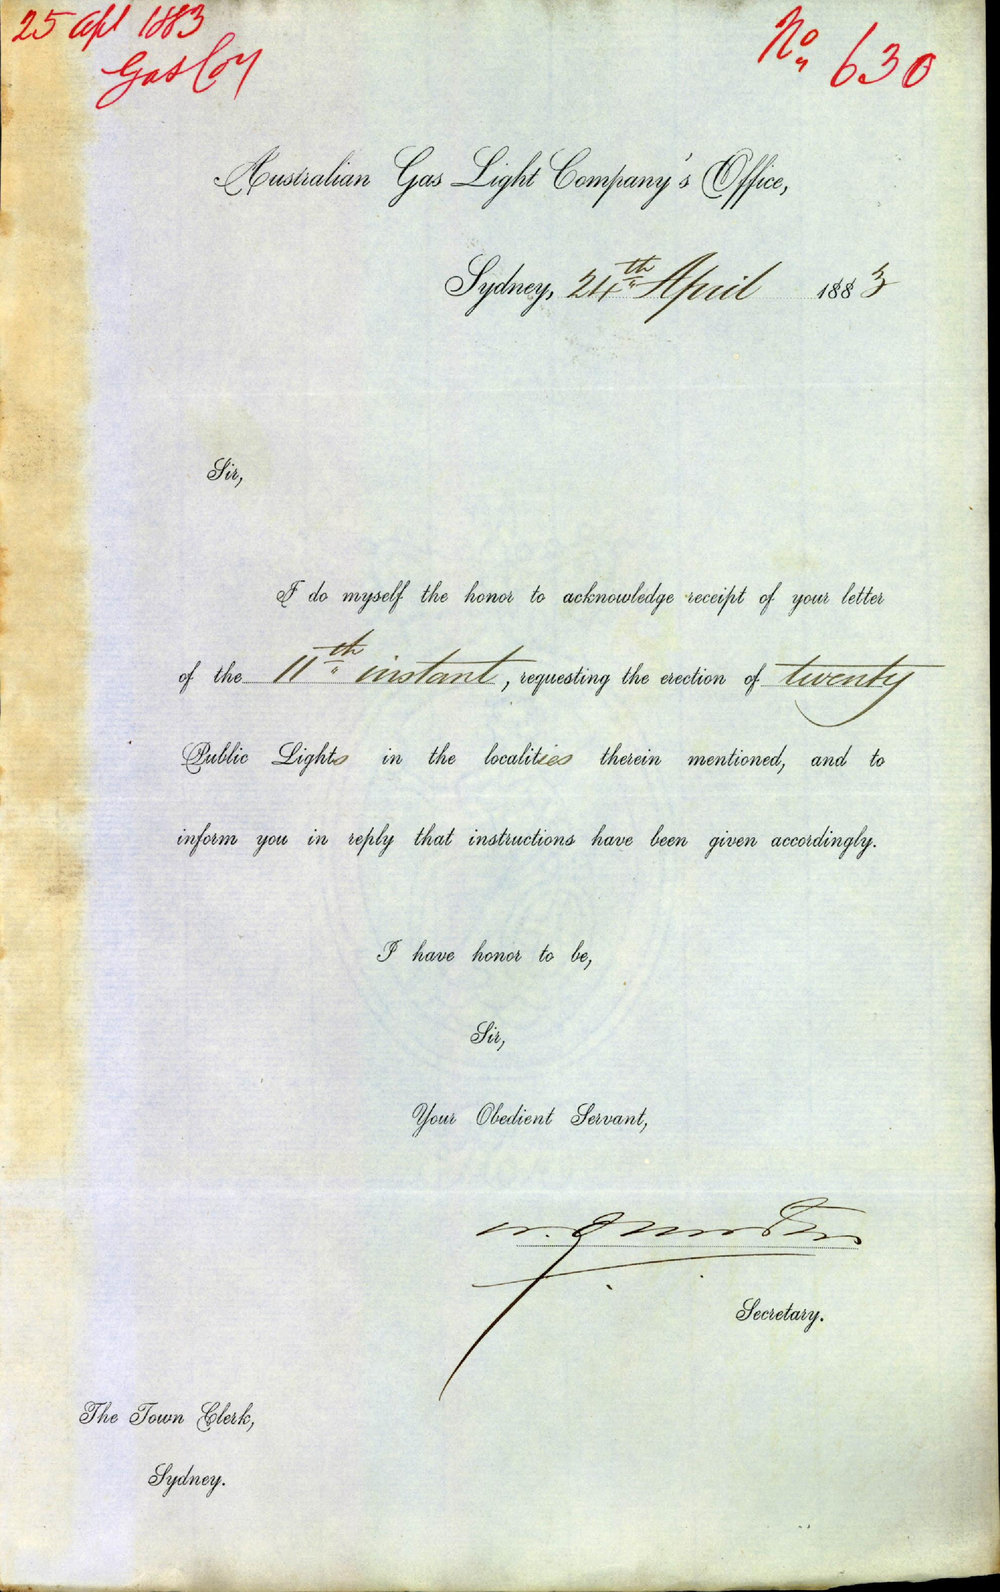 25 Apl 1883
Gas Coy
No. 630
Australian Gas Light Company's Office,
Sydney, 24th April 1883
Sir,
I do myself the honor to acknowledge receipt of your letter
of the 11th instant, requesting the erection of twenty
Public Lights in the localities therein mentioned, and to
inform you in reply that instructions have been given accordingly.
I have honor to be,
Sir,
Your Obedient Servant,
Secretary.
The Town Clerk,
Sydney.